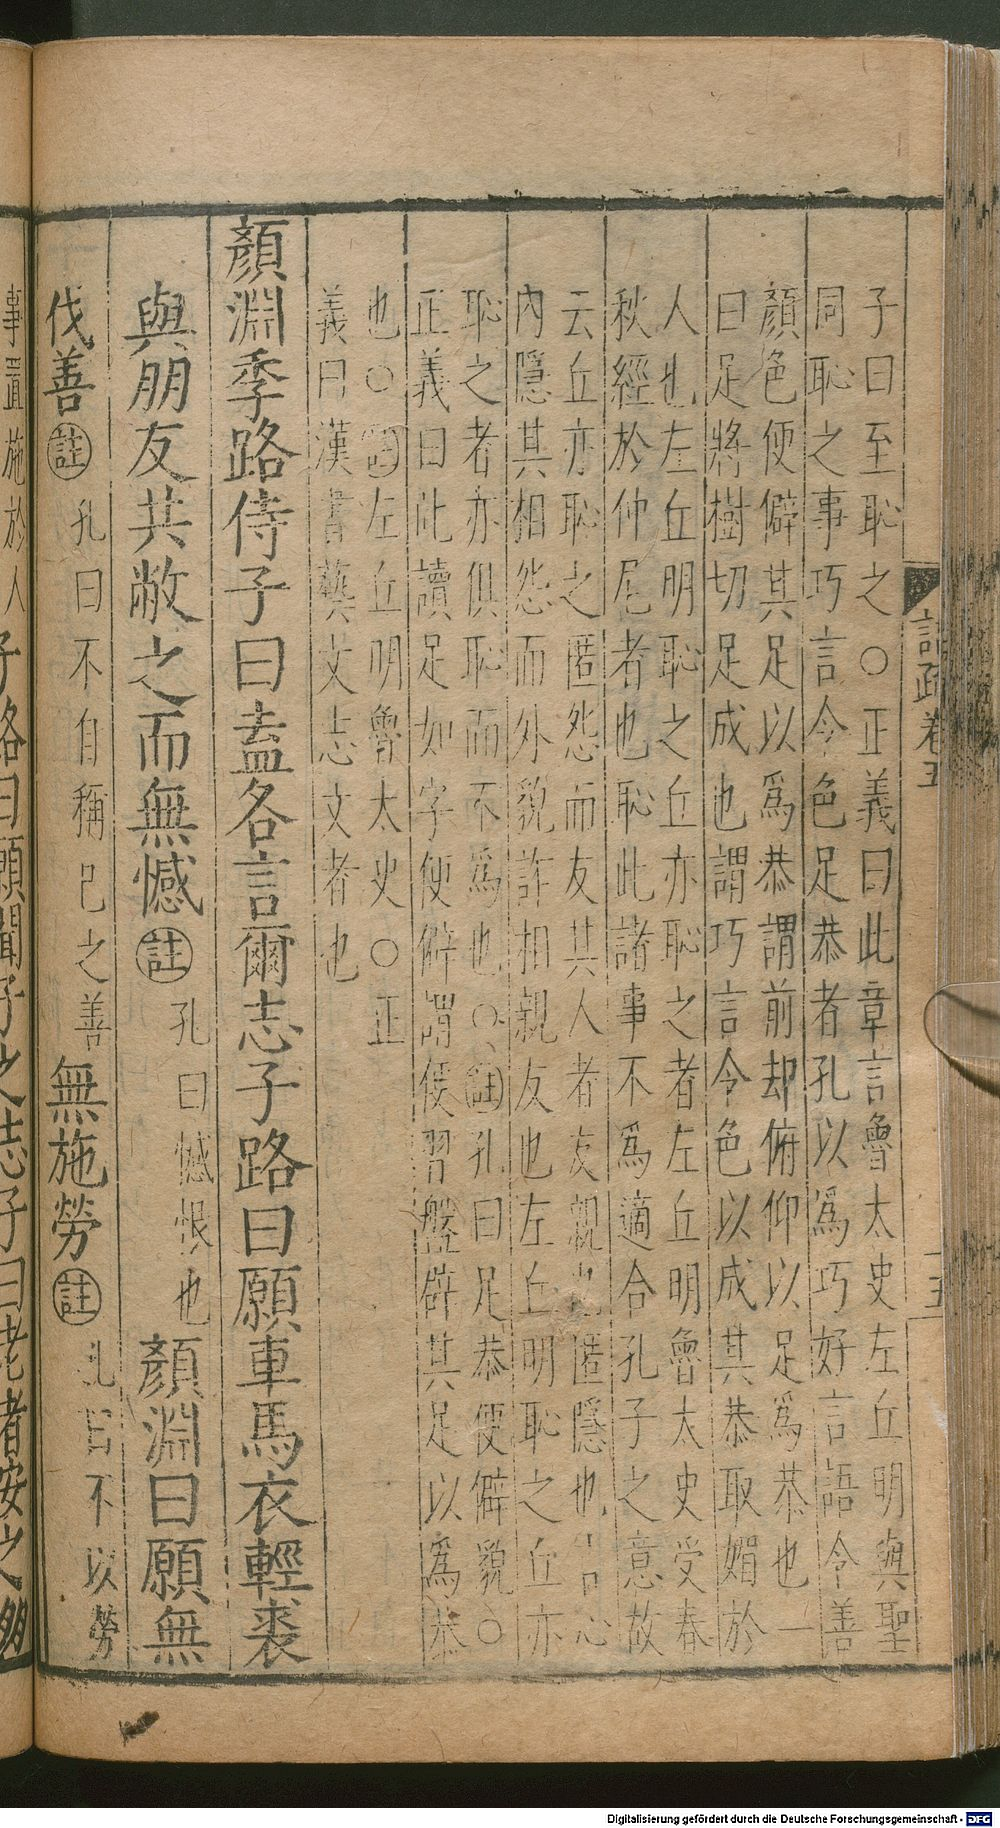 子曰至恥之○正義曰此章言魯太史左丘明與聖
同恥之事巧言令色足恭者孔以爲巧好言語令善
顏色便僻其足以爲恭謂前却俯仰以足爲恭也一
曰足將樹切足成也謂巧言令色以成其恭取媚於
人也左丘明恥之丘亦恥之者左丘明魯太史受春
秋經於仲尼者也恥此諸事不爲適合孔子之意故
云丘亦恥之匿怨而友其人者友親也匿隱也言心
內隱其相怨而外貌詐相親友也左丘明恥之丘亦
恥之者亦俱恥而不爲也○註孔曰足恭便僻貌○
正義曰此讀足如字便僻謂便習盤辟其足以爲恭
也○註左丘明魯太史○正
義曰漢書藝文志文者也
顏淵季路侍子曰盍各言爾志子路曰願車馬衣輕裘
與朋友共敝之而無憾註孔曰憾恨也顏淵曰願無
伐善註孔曰不自稱己之善無施勞註孔曰不以勞
事置施於人子路曰願聞子之志子曰老者安之朋
註疏卷五
十五
Digitalisierung gefördert durch die Deutsche Forschungsgemeinschaft - DFG